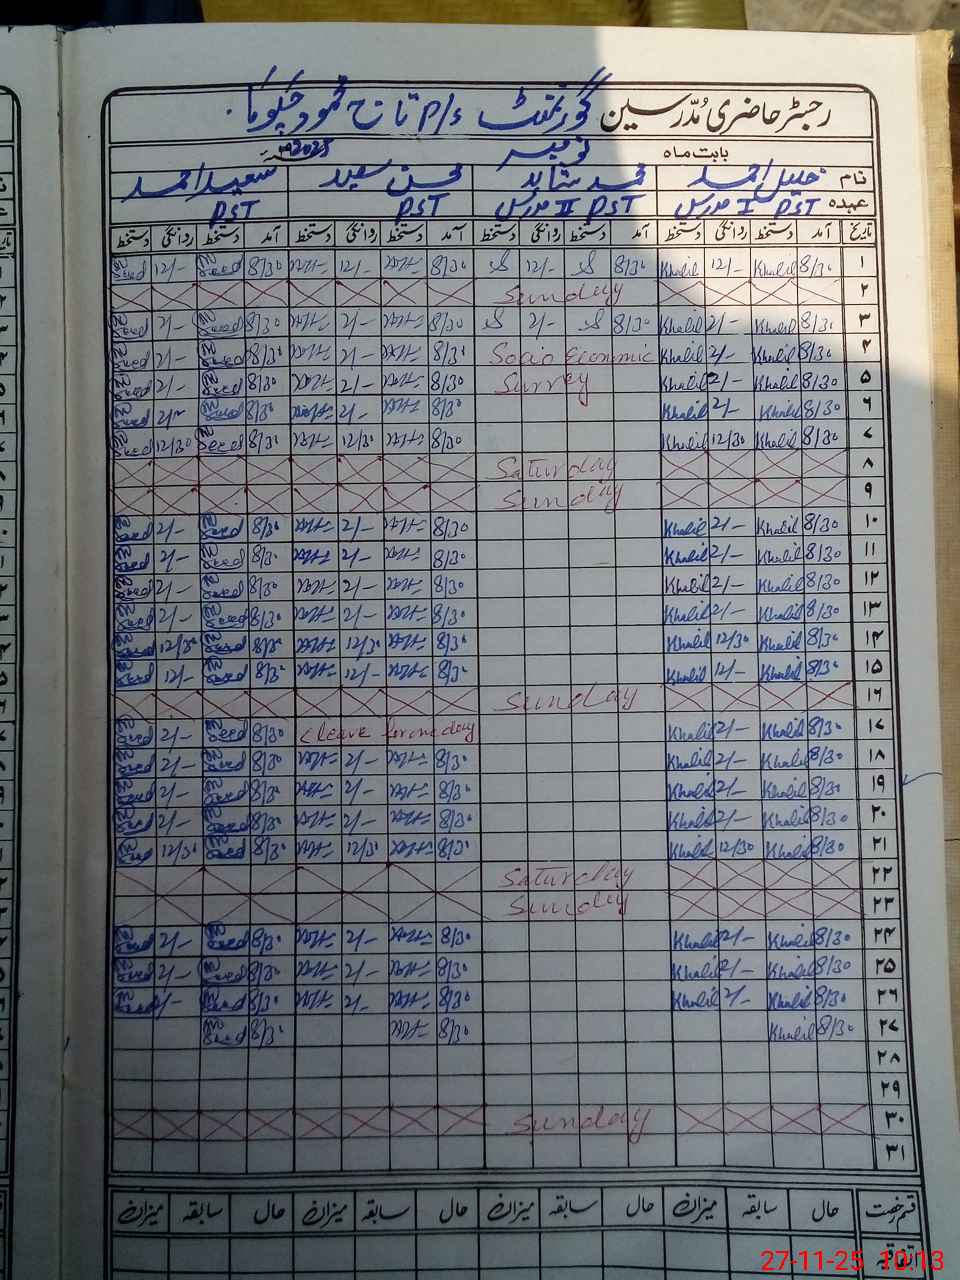 رجسٹر حاضری مُدرّسین گورنمنٹ P/S تاج محمود
بابت ماہ نومبر 2025
نام خلیل احمد محمد شاہد محسن سعید سعید احمد
عہدہ PST I مدرس PST II مدرس PST PST
تاریخ آمد دستخط روانگی دستخط آمد دستخط روانگی دستخط آمد دستخط روانگی دستخط آمد دستخط روانگی دستخط
۱ 8/30 Khalil 12/- Khalil 8/30 12/- 8/30 12/- 8/30 Saeed 12/- Saeed
۲ Sunday
۳ 8/30 Khalil 2/- Khalil 8/30 2/- 8/30 2/- 8/30 Saeed 2/- Saeed
۴ 8/30 Khalil 2/- Khalil Socio Economic 8/30 2/- 8/30 Saeed 2/- Saeed
۵ 8/30 Khalil 2/- Khalil Survey 8/30 2/- 8/30 Saeed 2/- Saeed
۶ 8/30 Khalil 2/- Khalil 8/30 2/- 8/30 Saeed 2/- Saeed
۷ 8/30 Khalil 12/30 Khalil 8/30 12/30 8/30 Saeed 12/30 Saeed
۸ Saturday
۹ Sunday
۱۰ 8/30 Khalil 2/- Khalil 8/30 2/- 8/30 Saeed 2/- Saeed
۱۱ 8/30 Khalil 2/- Khalil 8/30 2/- 8/30 Saeed 2/- Saeed
۱۲ 8/30 Khalil 2/- Khalil 8/30 2/- 8/30 Saeed 2/- Saeed
۱۳ 8/30 Khalil 2/- Khalil 8/30 2/- 8/30 Saeed 2/- Saeed
۱۴ 8/30 Khalil 12/30 Khalil 8/30 12/30 8/30 Saeed 12/30 Saeed
۱۵ 8/30 Khalil 12/- Khalil 8/30 12/- 8/30 Saeed 12/- Saeed
۱۶ Sunday
۱۷ 8/30 Khalil 2/- Khalil Cleave for one day 8/30 Saeed 2/- Saeed
۱۸ 8/30 Khalil 2/- Khalil 8/30 2/- 8/30 Saeed 2/- Saeed
۱۹ 8/30 Khalil 2/- Khalil 8/30 2/- 8/30 Saeed 2/- Saeed
۲۰ 8/30 Khalil 2/- Khalil 8/30 2/- 8/30 Saeed 2/- Saeed
۲۱ 8/30 Khalil 12/30 Khalil 8/30 12/30 8/30 Saeed 12/30 Saeed
۲۲ Saturday
۲۳ Sunday
۲۴ 8/30 Khalil 2/- Khalil 8/30 2/- 8/30 Saeed 2/- Saeed
۲۵ 8/30 Khalil 2/- Khalil 8/30 2/- 8/30 Saeed 2/- Saeed
۲۶ 8/30 Khalil 2/- Khalil 8/30 2/- 8/30 Saeed 2/- Saeed
۲۷ 8/30 Khalil 8/30 8/30 Saeed
۲۸
۲۹
۳۰ Sunday
۳۱
قسم رخصت حال سابقہ میزان حال سابقہ میزان حال سابقہ میزان حال سابقہ میزان
27-11-25 10:13